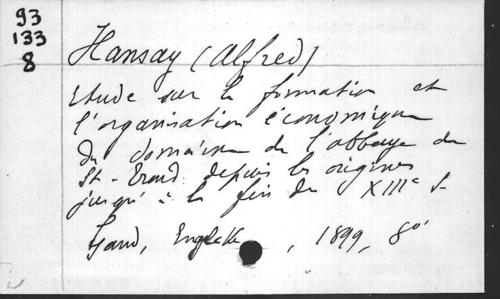 93
133
8
Hansay (Alfred)
Etude sur la formation et
l'organisation économique
du domaine de l'abbaye de
St-Trond depuis les origines
jusqu'à la fin du XIIIe s.
Gand, Engelcke, 1899, 8o